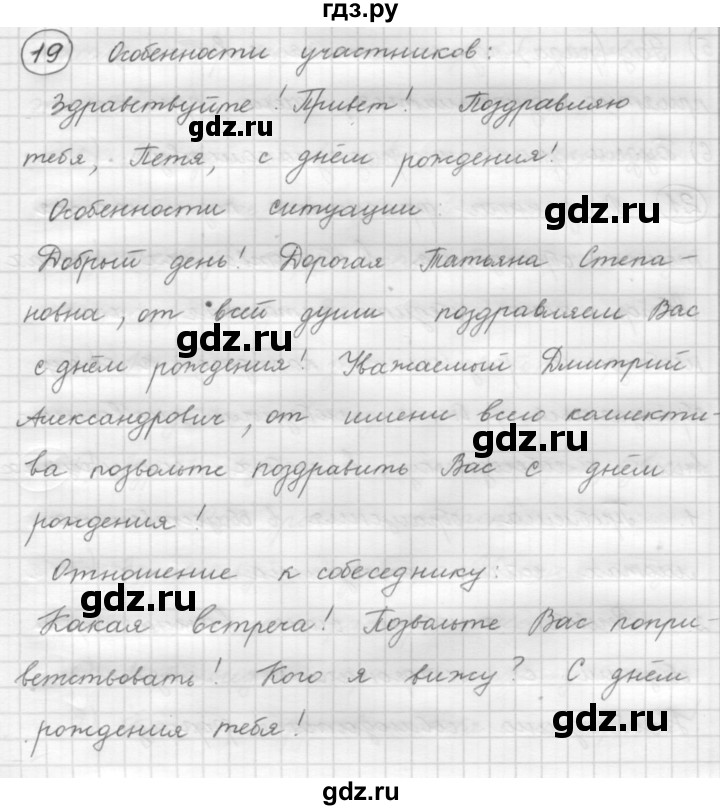 гдз.ру
19 Особенности участников:
Здравствуйте! Привет! Поздравляю
gdz.ru
тебя, Петя, с днём рождения!
Особенности ситуации:
gdz.ru
Добрый день! Дорогая Татьяна Степа-
новна, от всей души поздравляем Вас
gdz.ru
с днём рождения! Уважаемый Дмитрий
Александрович, от имени всего коллекти-
gdz.ru
ва позвольте поздравить Вас с днём
рождения!
Отношение к собеседнику:
gdz.ru
Какая встреча! Позвольте Вас попри-
ветствовать! Кого я вижу? С днём
gdz.ru
рождения тебя!
gdz.ru